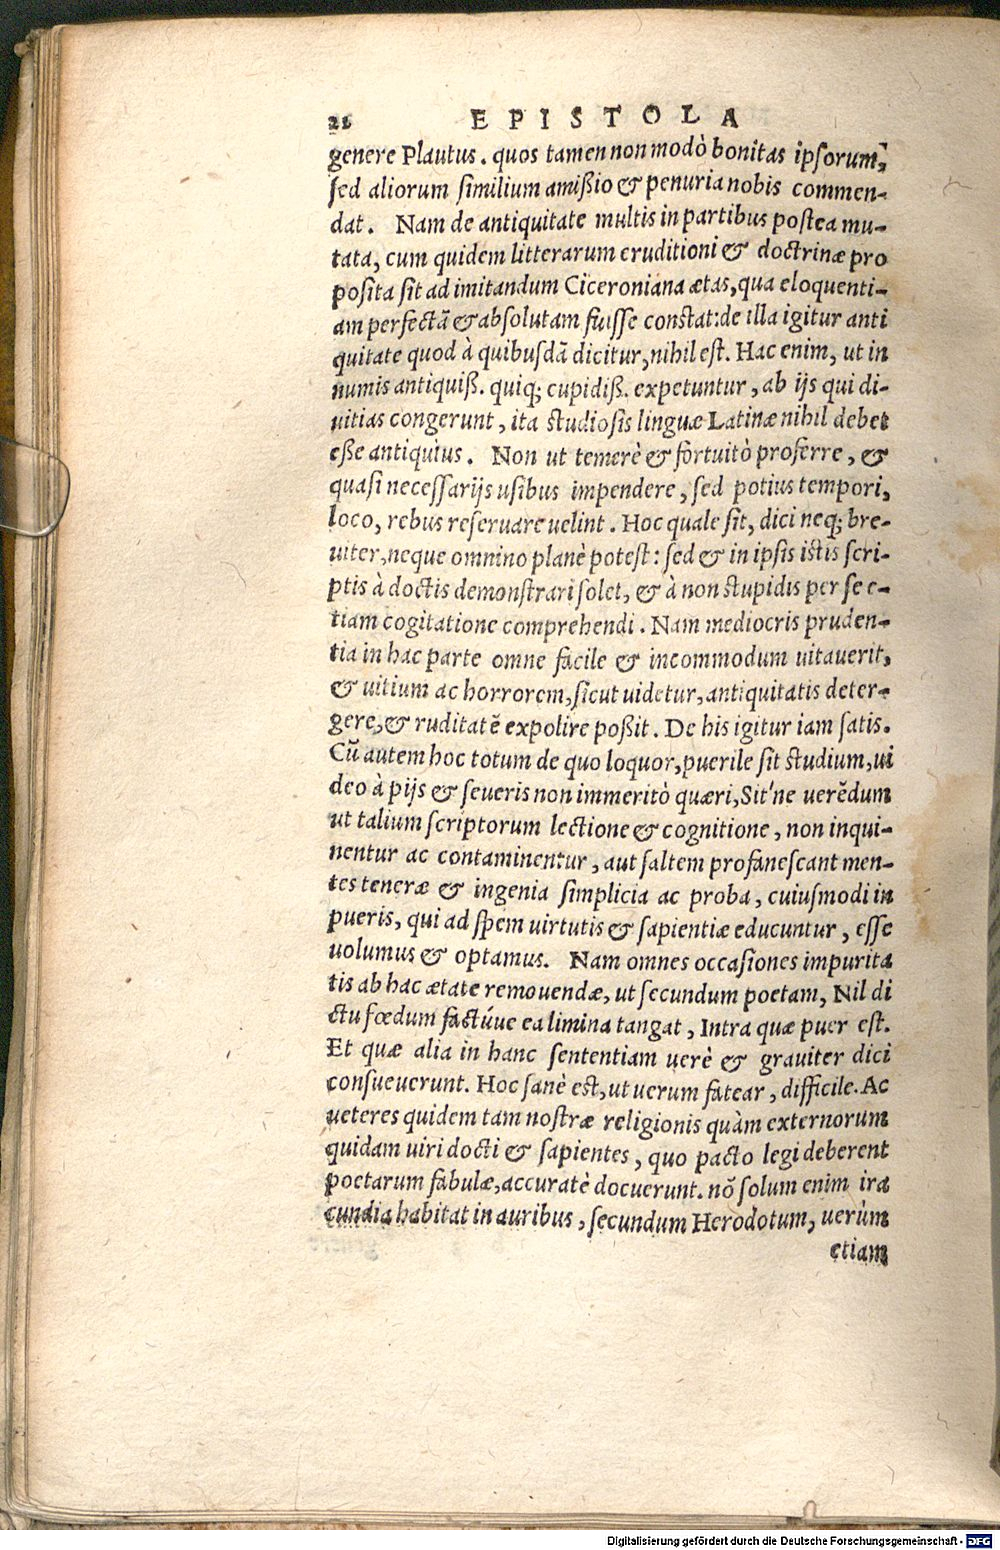 22 EPISTOLA
genere Plautus. quos tamen non modò bonitas ipsorum,
sed aliorum similium amißio & penuria nobis commen-
dat. Nam de antiquitate multis in partibus postea mu-
tata, cum quidem litterarum eruditioni & doctrinæ pro
posita sit ad imitandum Ciceroniana ætas, qua eloquenti-
am perfectã & absolutam fuisse constat: de illa igitur anti
quitate quod à quibusdã dicitur, nihil est. Hac enim, ut in
numis antiquiß. quiq; cupidiß. expetuntur, ab ijs qui di-
uitias congerunt, ita studiosis linguæ Latinæ nihil debet
eße antiquius. Non ut temerè & fortuitò proferre, &
quasi necessarijs usibus impendere, sed potius tempori,
loco, rebus reseruare uelint. Hoc quale sit, dici neq; bre-
uiter, neque omnino planè potest: sed & in ipsis istis scri-
ptis à doctis demonstrari solet, & à non stupidis per se e-
tiam cogitatione comprehendi. Nam mediocris pruden-
tia in hac parte omne facile & incommodum uitauerit,
& uitium ac horrorem, sicut uidetur, antiquitatis deter-
gere, & ruditatẽ expolire poßit. De his igitur iam satis.
Cũ autem hoc totum de quo loquor, puerile sit studium, ui
deo à pijs & seueris non immeritò quæri, Sit'ne uerẽdum
ut talium scriptorum lectione & cognitione, non inqui-
nentur ac contaminentur, aut saltem profanescant men-
tes teneræ & ingenia simplicia ac proba, cuiusmodi in
pueris, qui ad spem uirtutis & sapientiæ educuntur, esse
uolumus & optamus. Nam omnes occasiones impurita
tis ab hac ætate remouendæ, ut secundum poetam, Nil di
ctu fœdum factúue ea limina tangat, Intra quæ puer est.
Et quæ alia in hanc sententiam uerè & grauiter dici
consueuerunt. Hoc sanè est, ut uerum fatear, difficile. Ac
ueteres quidem tam nostræ religionis quàm externorum
quidam uiri docti & sapientes, quo pacto legi deberent
poetarum fabulæ, accuratè docuerunt. nõ solum enim ira
cundia habitat in auribus, secundum Herodotum, uerùm
etiam
Digitalisierung gefördert durch die Deutsche Forschungsgemeinschaft - DFG